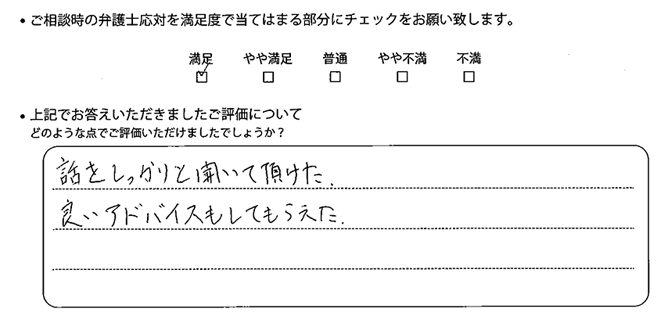 • ご相談時の弁護士応対を満足度で当てはまる部分にチェックをお願い致します。
満足 やや満足 普通 やや不満 不満
☑ ☐ ☐ ☐ ☐
• 上記でお答えいただきましたご評価について
どのような点でご評価いただけましたでしょうか？
話をしっかりと聞いて頂けた.
良いアドバイスもしてもらえた.